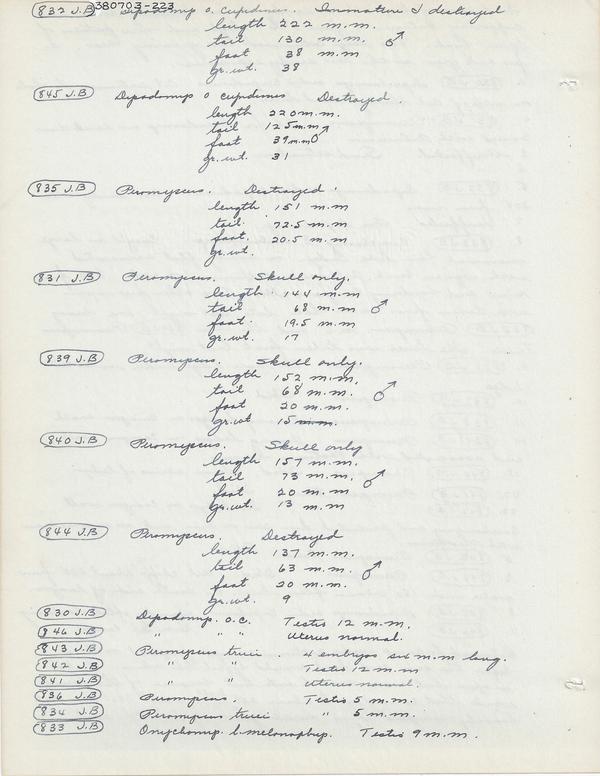 832 J.B 380703-223 Dipodomys o. cupidineus. Immature & destroyed
length 222 m.m.
tail 130 m.m. ♂
foot 38 m.m
gr. wt. 38
845 J.B Dipodomys o cupidineus Destroyed.
length 220 m.m.
tail 125 m.m ♂
foot 39 m.m
gr. wt. 31
835 J.B Peromyscus. Destroyed.
length 151 m.m
tail 72.5 m.m
foot. 20.5 m.m
gr. wt.
831 J.B Peromyscus. Skull only.
length 144 m.m
tail 68 m.m ♂
foot. 19.5 m.m
gr. wt. 17
839 J.B Peromyscus. Skull only.
length 152 m.m.
tail 68 m.m. ♂
foot 20 m.m.
gr. wt. 15 m.m.
840 J.B Peromyscus. Skull only
length 157 m.m.
tail 73 m.m ♂
foot 20 m.m
gr. wt. 13 m.m
844 J.B Peromyscus. Destroyed
length 137 m.m.
tail 63 m.m. ♂
foot 20 m.m.
gr. wt. 9
830 J.B Dipodomys. o.c. Testis 12 m.m.
846 J.B " " " Uterus normal.
843 J.B Peromyscus truei. 4 embryos six m.m long.
842 J.B " " Testis 12 m.m
841 J.B " " Uterus normal.
836 J.B Peromyscus. Testis 5 m.m.
834 J.B Peromyscus truei " 5 m.m.
833 J.B Onychomys. l. melanophrys. Testis 9 m.m.